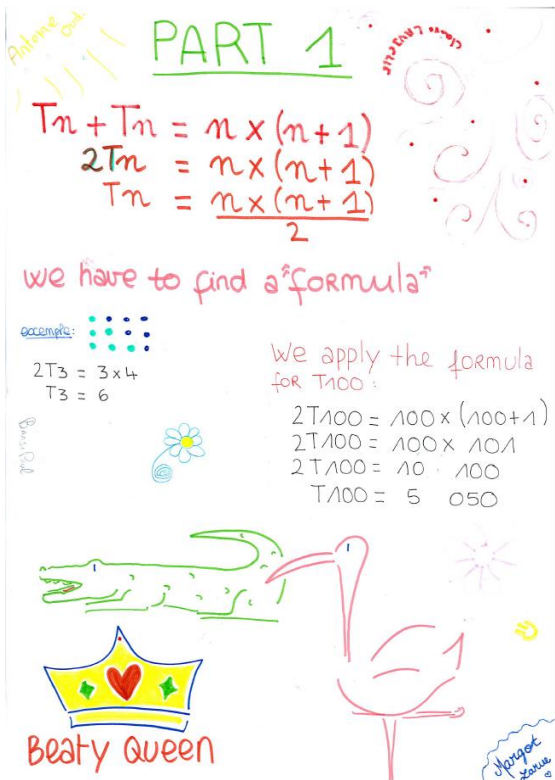 Antoine
PART 1
Tn + Tn = n x (n + 1)
2Tn = n x (n + 1)
Tn = n x (n + 1)
2
we have to find a "formula"
excemple:
2T3 = 3 x 4
T3 = 6
We apply the formula
for T100 :
2T100 = 100 x (100+1)
2T100 = 100 x 101
2T100 = 10 100
T100 = 5 050
Beaty Queen
Margot
Larue